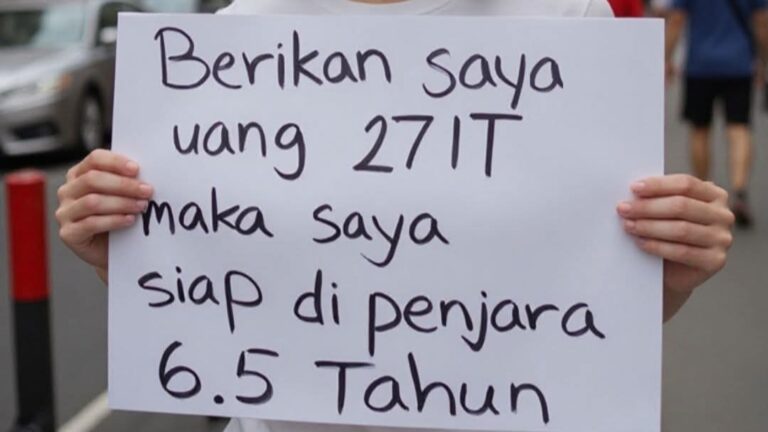 Berikan saya
uang 271T
maka saya
siap di penjara
6.5 Tahun